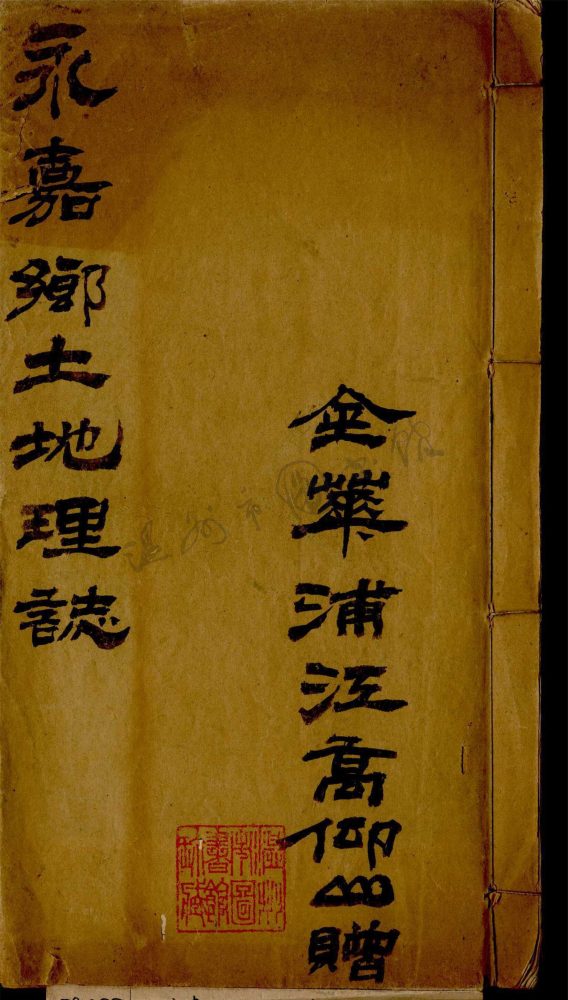 永嘉鄉土地理誌
金華浦江高仰山贈
溫州市圖書館
溫州市圖書館所藏